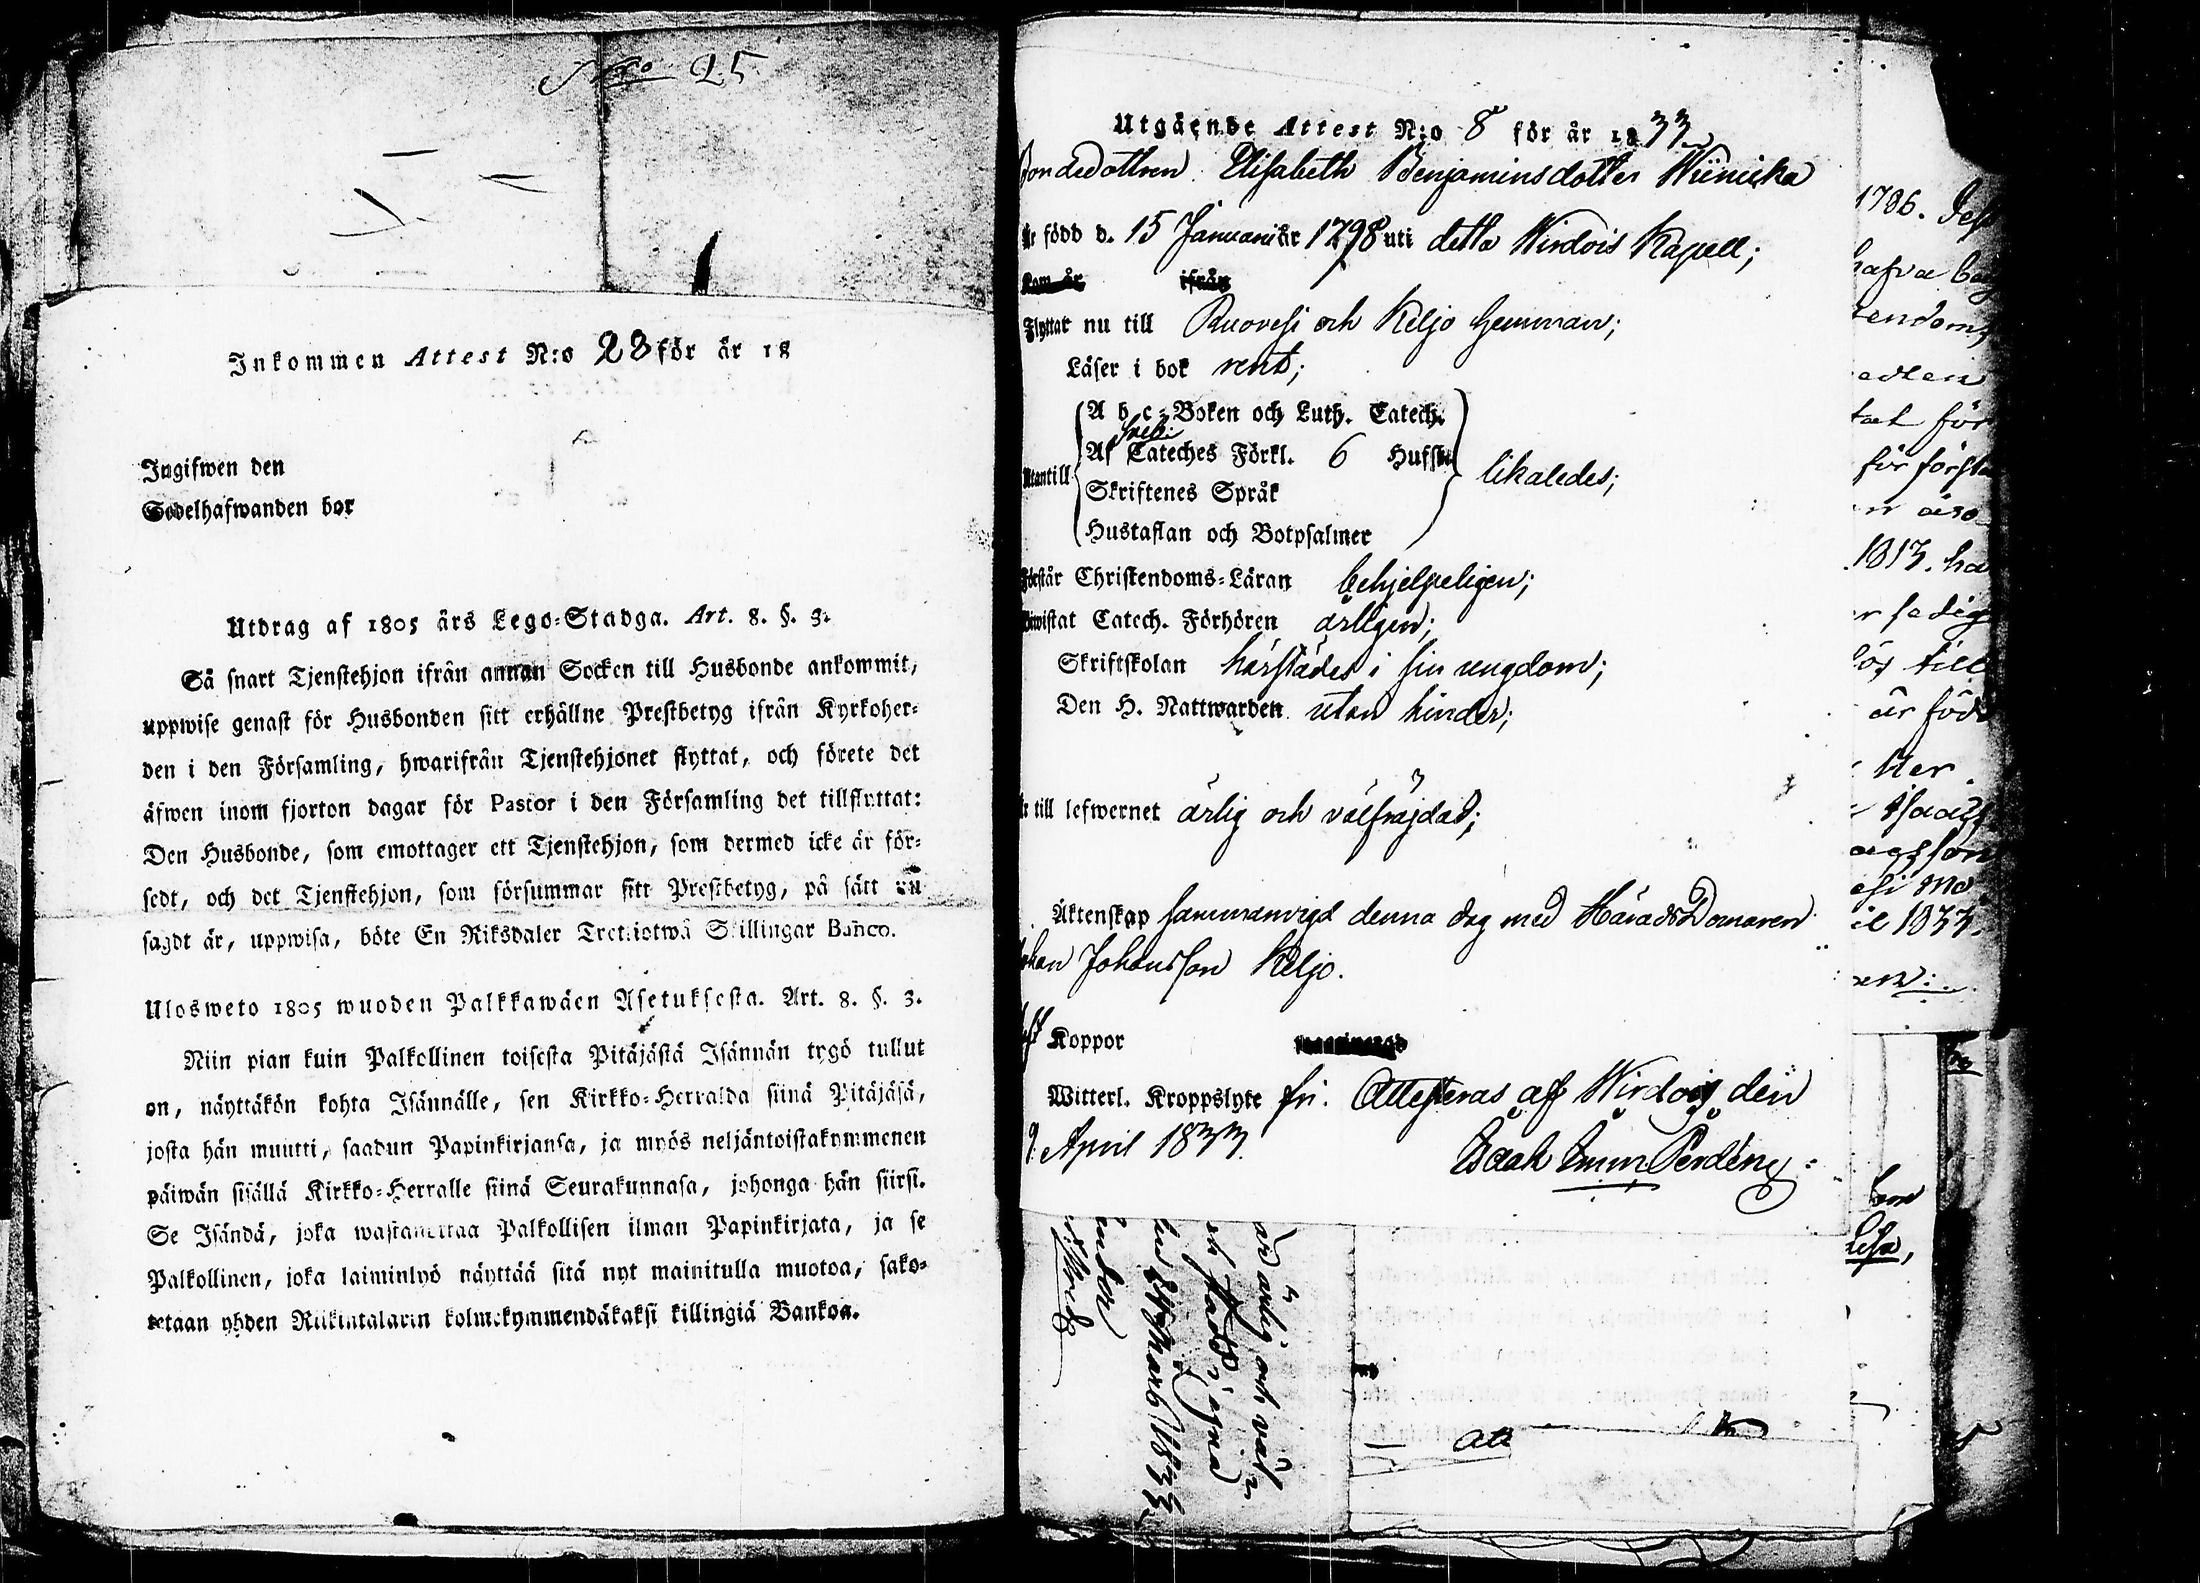 Nro 25.
Inkommen Attest N:o 23 för år 18
Ingifwen den
Sedelhafwanden bor
Utdrag af 1805 års Lego-Stadga. Art. 8. §. 3.
Så snart Tjenstehjon ifrån annan Socken till Husbonde ankommit,
uppwise genast för Husbonden sitt erhållne Prestbetyg ifrån Kyrkoher-
den i den Församling, hwarifrån Tjenstehjonet flyttat, och förete det
äfwen inom fjorton dagar för Pastor i den Församling det tillflyttat:
Den Husbonde, som emottager ett Tjenstehjon, som dermed icke är för-
sedt, och det Tjenstehjon, som försummar sitt Prestbetyg, på sätt nu
sagdt är, uppwisa, böte En Riksdaler Trettiotwå Skillingar Banco.
Ulosweto 1805 wuoden Palkkawäen Asetuksesta. Art. 8. §. 3.
Niin pian kuin Palkollinen toisesta Pitäjästä Isännän tygö tullut
on, näyttäkön kohta Isännälle, sen Kirkko-Herralda siinä Pitäjäsä,
josta hän muutti, saadun Papinkirjansa, ja myös neljäntoistakymmenen
päiwän sisällä Kirkko-Herralle siinä Seurakunnasa, johonga hän siirsi.
Se Isändä, joka wastanottaa Palkollisen ilman Papinkirjata, ja se
Palkollinen, joka laiminlyö näyttää sitä nyt mainitulla muotoa, sako-
tetaan yhden Riikintalarin kolmekymmendäkaksi killingiä Bankoa.
Utgående Attest N:o 8 för år 1833.
Bondedottren Elisabeth Benjaminsdotter Wiinicka
Är född d. 15 Januarii år 1798 uti detta Wirdois Kapell;
Kom år ifrån
Flyttar nu till Ruovesi och Keljo hemman;
Läser i bok rent;
A b c-Boken och Luth. Catech.
Sveb:
Utantill Af Cateches Förkl. 6 Hufst. likaledes;
Skriftenes Språk
Hustaflan och Botpsalmer
Förstår Christendoms-Läran behjelpeligen;
Biwistat Catech. Förhören årligen;
Skriftskolan härstädes i sin ungdom;
Den H. Nattwarden utan hinder;
Är till lefwernet ärlig och välfrägdad;
Äktenskap sammanvigd denna dag med HäradsDomaren
Johan Johansson Keljo.
Koppor
Witterl. Kroppslyte fri. Attesteras af Wirdois den
9 April 1833.
Isaak Imm. Perdén
1786.
hafva
tendoms
för
för första
1813. ha
är född
1833.
ärlig och väl-